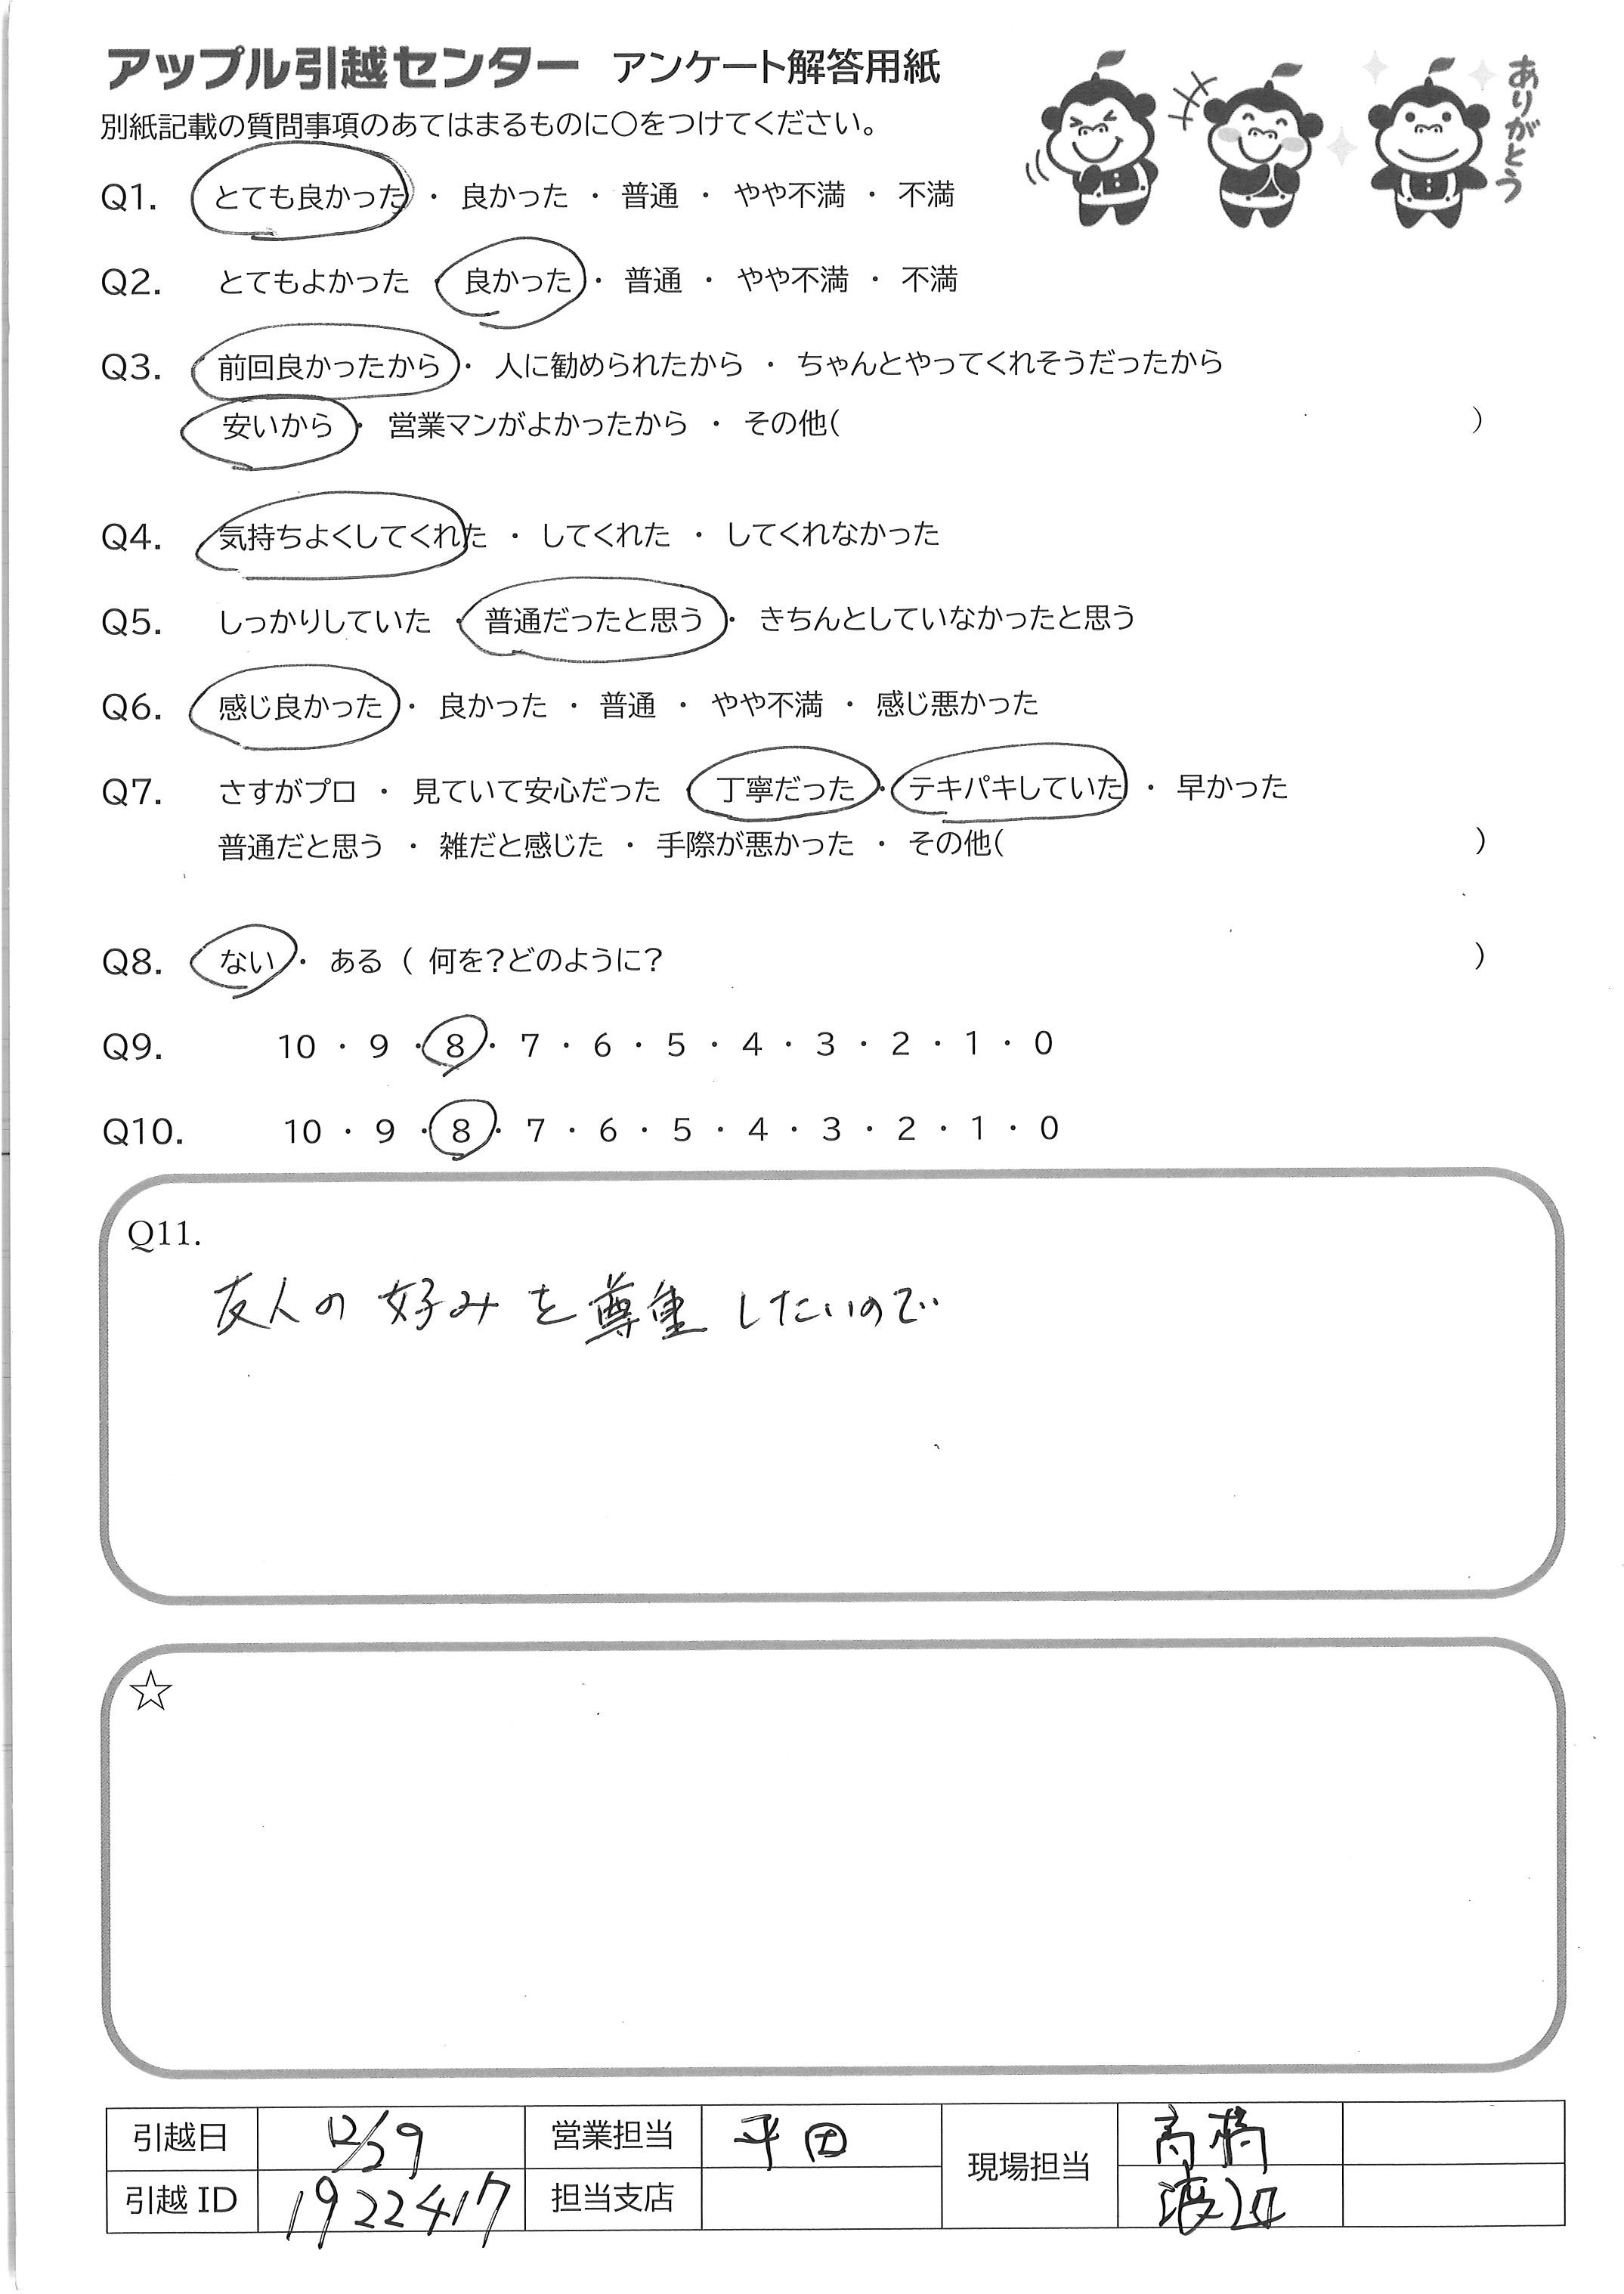 アップル引越センター アンケート解答用紙
ありがとう
別紙記載の質問事項のあてはまるものに○をつけてください。
Q1. とても良かった ・ 良かった ・ 普通 ・ やや不満 ・ 不満
Q2. とてもよかった ・ 良かった ・ 普通 ・ やや不満 ・ 不満
Q3. 前回良かったから ・ 人に勧められたから ・ ちゃんとやってくれそうだったから
安いから ・ 営業マンがよかったから ・ その他( )
Q4. 気持ちよくしてくれた ・ してくれた ・ してくれなかった
Q5. しっかりしていた ・ 普通だったと思う ・ きちんとしていなかったと思う
Q6. 感じ良かった ・ 良かった ・ 普通 ・ やや不満 ・ 感じ悪かった
Q7. さすがプロ ・ 見ていて安心だった ・ 丁寧だった ・ テキパキしていた ・ 早かった
普通だと思う ・ 雑だと感じた ・ 手際が悪かった ・ その他( )
Q8. ない ・ ある ( 何を?どのように? )
Q9. 10 ・ 9 ・ 8 ・ 7 ・ 6 ・ 5 ・ 4 ・ 3 ・ 2 ・ 1 ・ 0
Q10. 10 ・ 9 ・ 8 ・ 7 ・ 6 ・ 5 ・ 4 ・ 3 ・ 2 ・ 1 ・ 0
Q11.
友人の好みを尊重したいので
☆
引越日 12/29 営業担当 平田 現場担当 高橋
引越ID 1922417 担当支店 渡辺